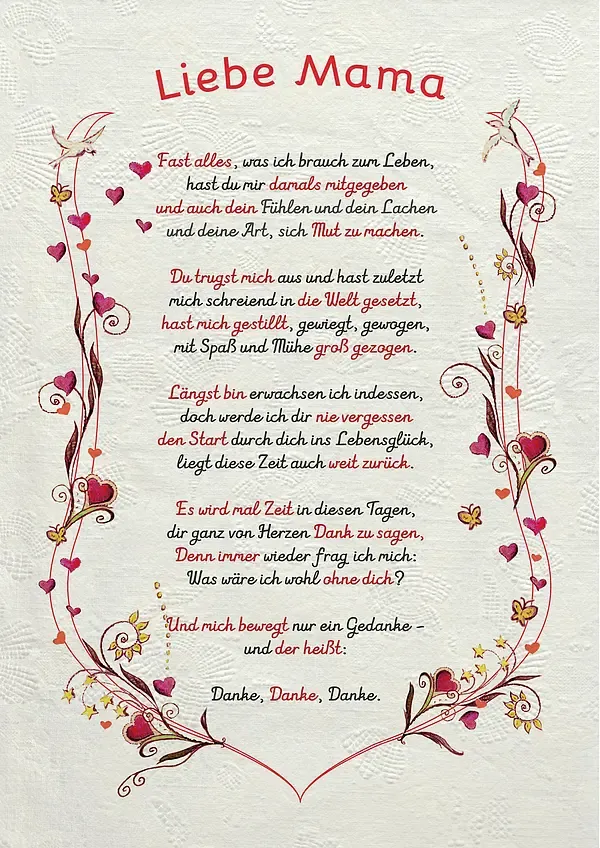 Liebe Mama
Fast alles, was ich brauch zum Leben,
hast du mir damals mitgegeben
und auch dein Fühlen und dein Lachen
und deine Art, sich Mut zu machen.
Du trugst mich aus und hast zuletzt
mich schreiend in die Welt gesetzt,
hast mich gestillt, gewiegt, gewogen,
mit Spaß und Mühe groß gezogen.
Längst bin erwachsen ich indessen,
doch werde ich dir nie vergessen
den Start durch dich ins Lebensglück,
liegt diese Zeit auch weit zurück.
Es wird mal Zeit in diesen Tagen,
dir ganz von Herzen Dank zu sagen,
Denn immer wieder frag ich mich:
Was wäre ich wohl ohne dich?
Und mich bewegt nur ein Gedanke –
und der heißt:
Danke, Danke, Danke.